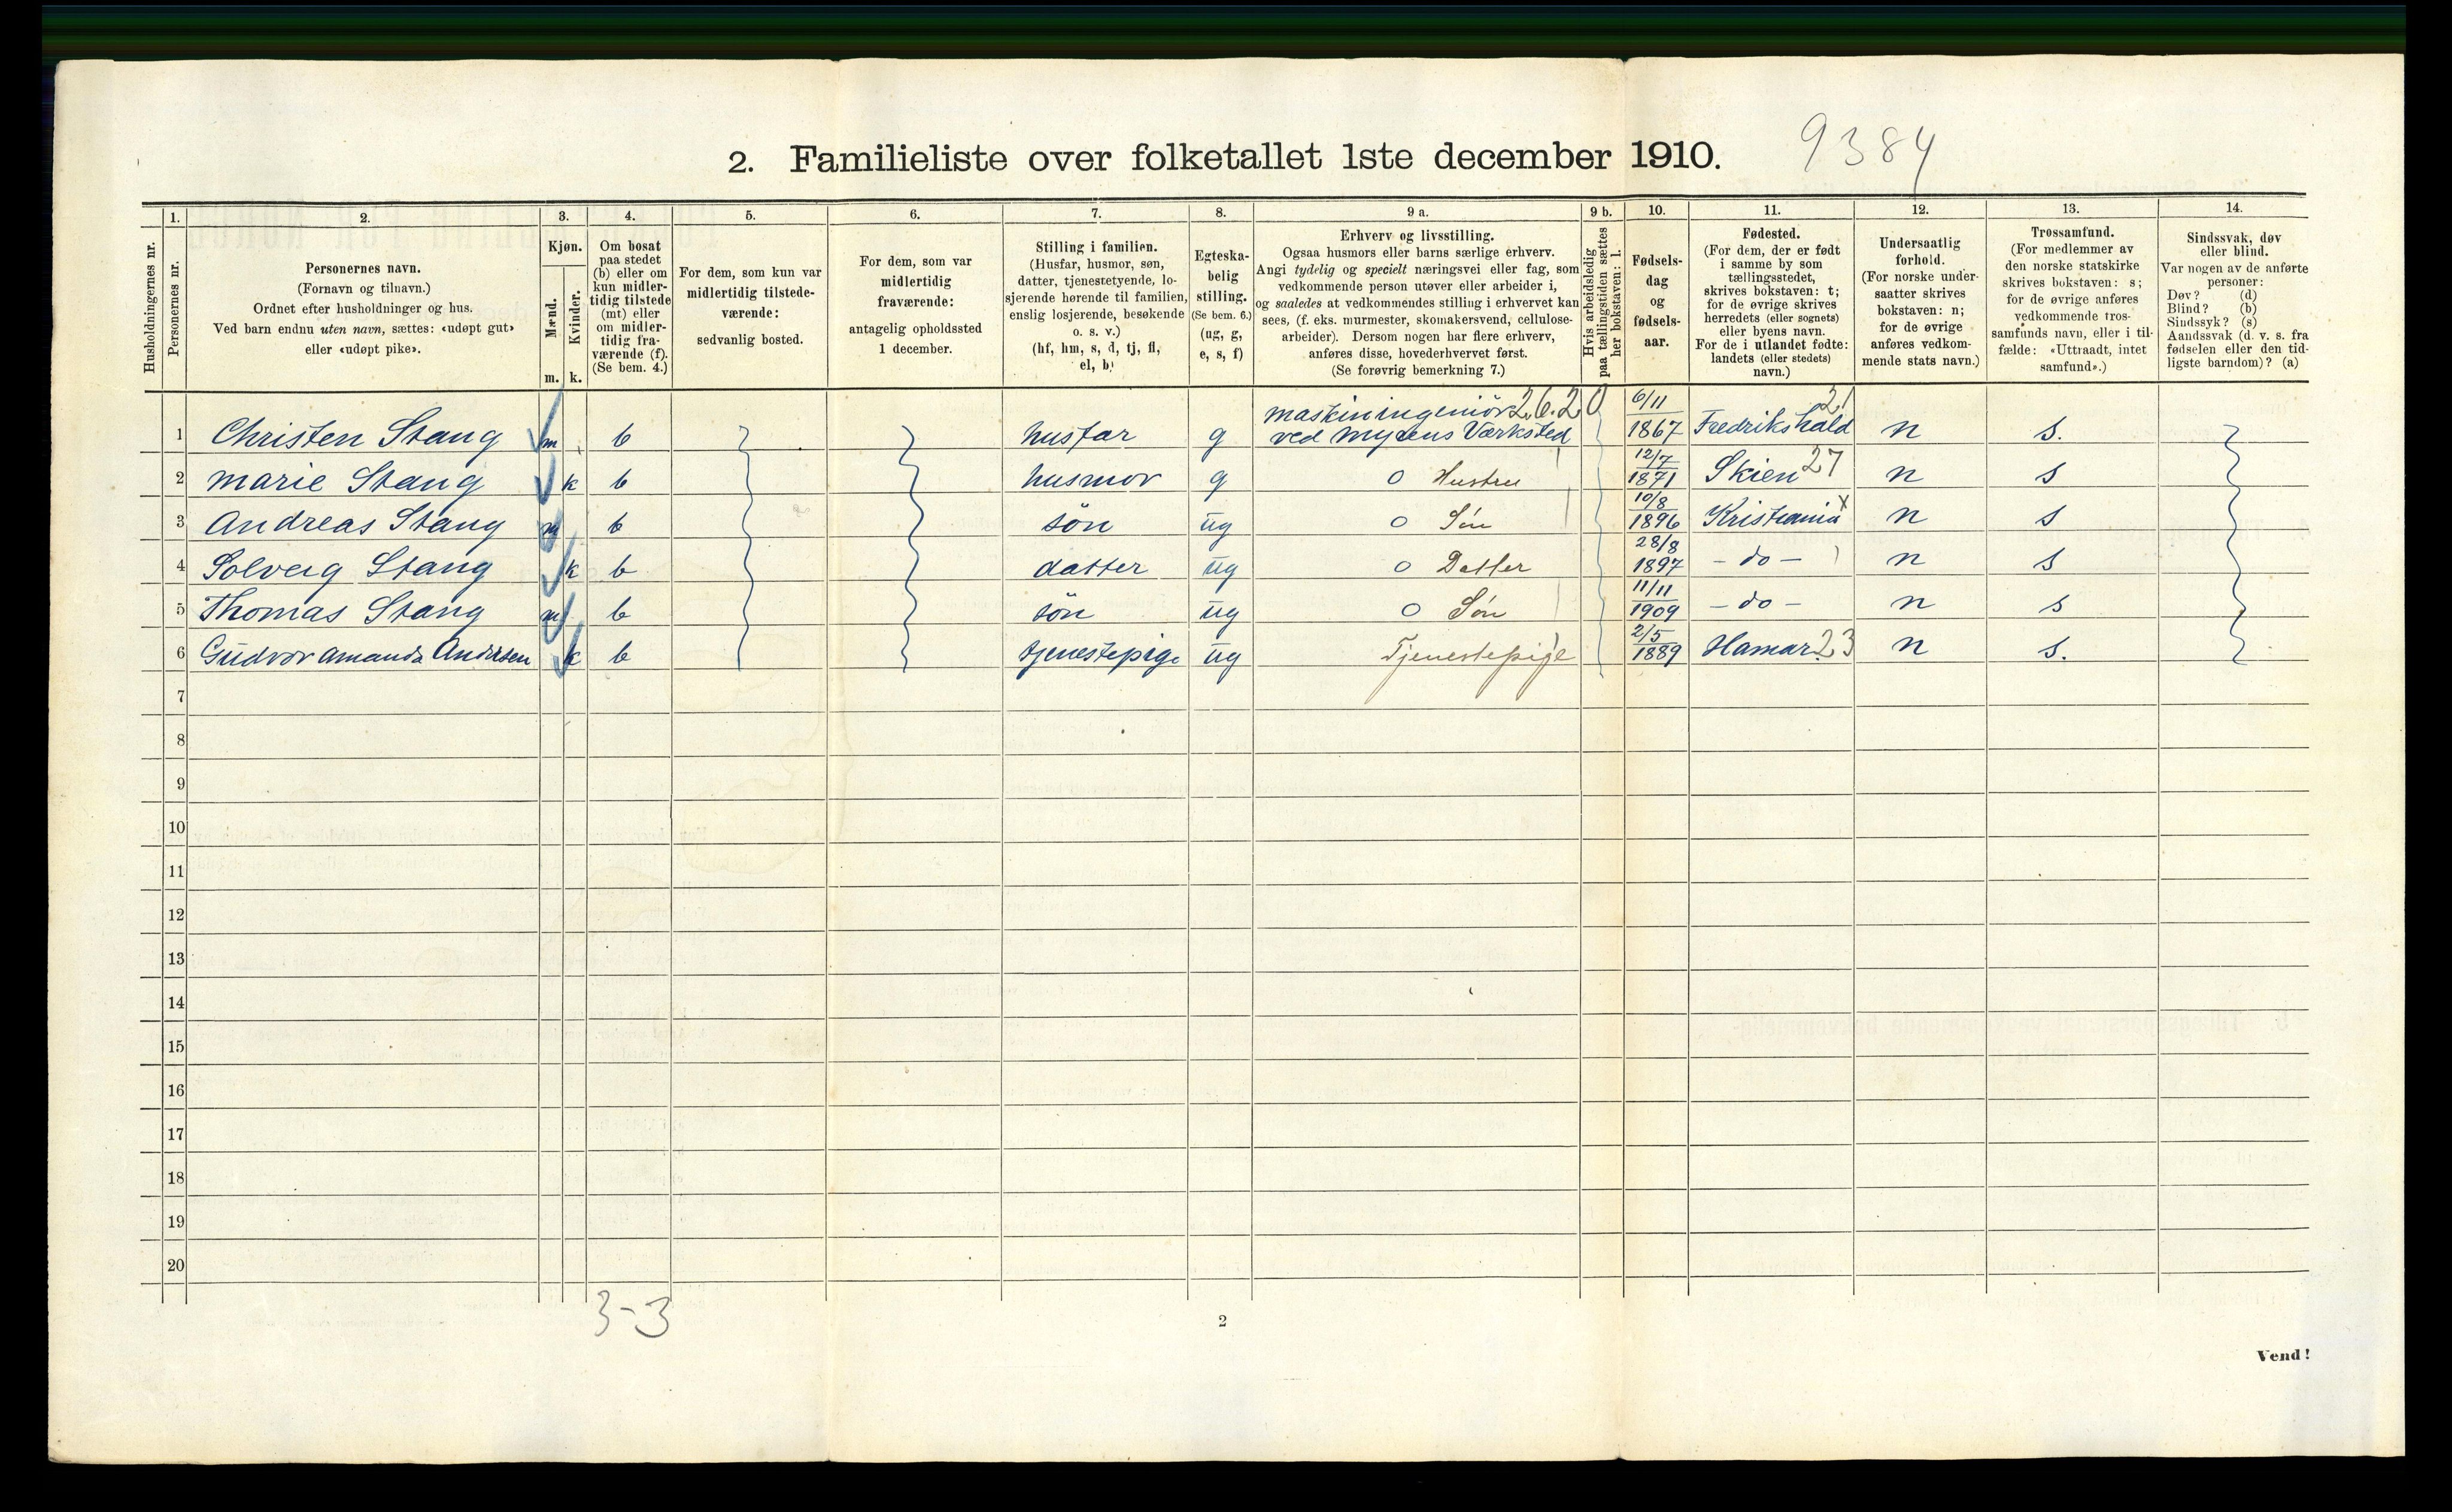 2. Familieliste over folketallet 1ste december 1910. 9384
1. 2. 3. 4. 5. 6. 7. 8. 9 a. 9 b. 10. 11. 12. 13. 14.
Husholdningernes nr.
Personernes nr.
Personernes navn.
(Fornavn og tilnavn.)
Ordnet efter husholdninger og hus.
Ved barn endnu uten navn, sættes: «udøpt gut»
eller «udøpt pike».
Kjøn.
Mænd.
Kvinder.
m. k.
Om bosat
paa stedet
(b) eller om
kun midler-
tidig tilstede
(mt) eller
om midler-
tidig fra-
værende (f).
(Se bem. 4.)
For dem, som kun var
midlertidig tilstede-
værende:
sedvanlig bosted.
For dem, som var
midlertidig
fraværende:
antagelig opholdssted
1 december.
Stilling i familien.
(Husfar, husmor, søn,
datter, tjenestetyende, lo-
sjerende hørende til familien,
enslig losjerende, besøkende
o. s. v.)
(hf, hm, s, d, tj, fl,
el, b)
Egteska-
belig
stilling.
(Se bem. 6.)
(ug, g,
e, s, f)
Erhverv og livsstilling.
Ogsaa husmors eller barns særlige erhverv.
Angi tydelig og specielt næringsvei eller fag, som
vedkommende person utøver eller arbeider i,
og saaledes at vedkommendes stilling i erhvervet kan
sees, (f. eks. murmester, skomakersvend, cellulose-
arbeider). Dersom nogen har flere erhverv,
anføres disse, hovederhvervet først.
(Se forøvrig bemerkning 7.)
Hvis arbeidsledig
paa tællingstiden sættes
her bokstaven: l.
Fødsels-
dag
og
fødsels-
aar.
Fødested.
(For dem, der er født
i samme by som
tællingsstedet,
skrives bokstaven: t;
for de øvrige skrives
herredets (eller sognets)
eller byens navn.
For de i utlandet fødte:
landets (eller stedets)
navn.)
Undersaatlig
forhold.
(For norske under-
saatter skrives
bokstaven: n;
for de øvrige
anføres vedkom-
mende stats navn.)
Trossamfund.
(For medlemmer av
den norske statskirke
skrives bokstaven: s;
for de øvrige anføres
vedkommende tros-
samfunds navn, eller i til-
fælde: «Uttraadt, intet
samfund».)
Sindssvak, døv
eller blind.
Var nogen av de anførte
personer:
Døv? (d)
Blind? (b)
Sindssyk? (s)
Aandssvak (d. v. s. fra
fødselen eller den tid-
ligste barndom)? (a)
maskiningeniör 26.20 6/11 21
1 Christen Stang m b husfar g ved Myrens Værksted 1867 Fredrikshald n s.
12/7
2 Marie Stang k b husmor g o Hustru 1871 Skien 27 n s
10/8
3 Andreas Stang m b sön ug o Søn 1896 Kristiania x n s
28/8
4 Solveig Stang k b datter ug o Datter 1897 - do - n s
11/11
5 Thomas Stang m b sön ug o Søn 1909 - do - n s
2/5
6 Gudvor Amanda Andersen k b tjenestepige ug Tjenestepige 1889 Hamar 23 n s.
7
8
9
10
11
12
13
14
15
16
17
18
19
20
3-3
2
Vend!